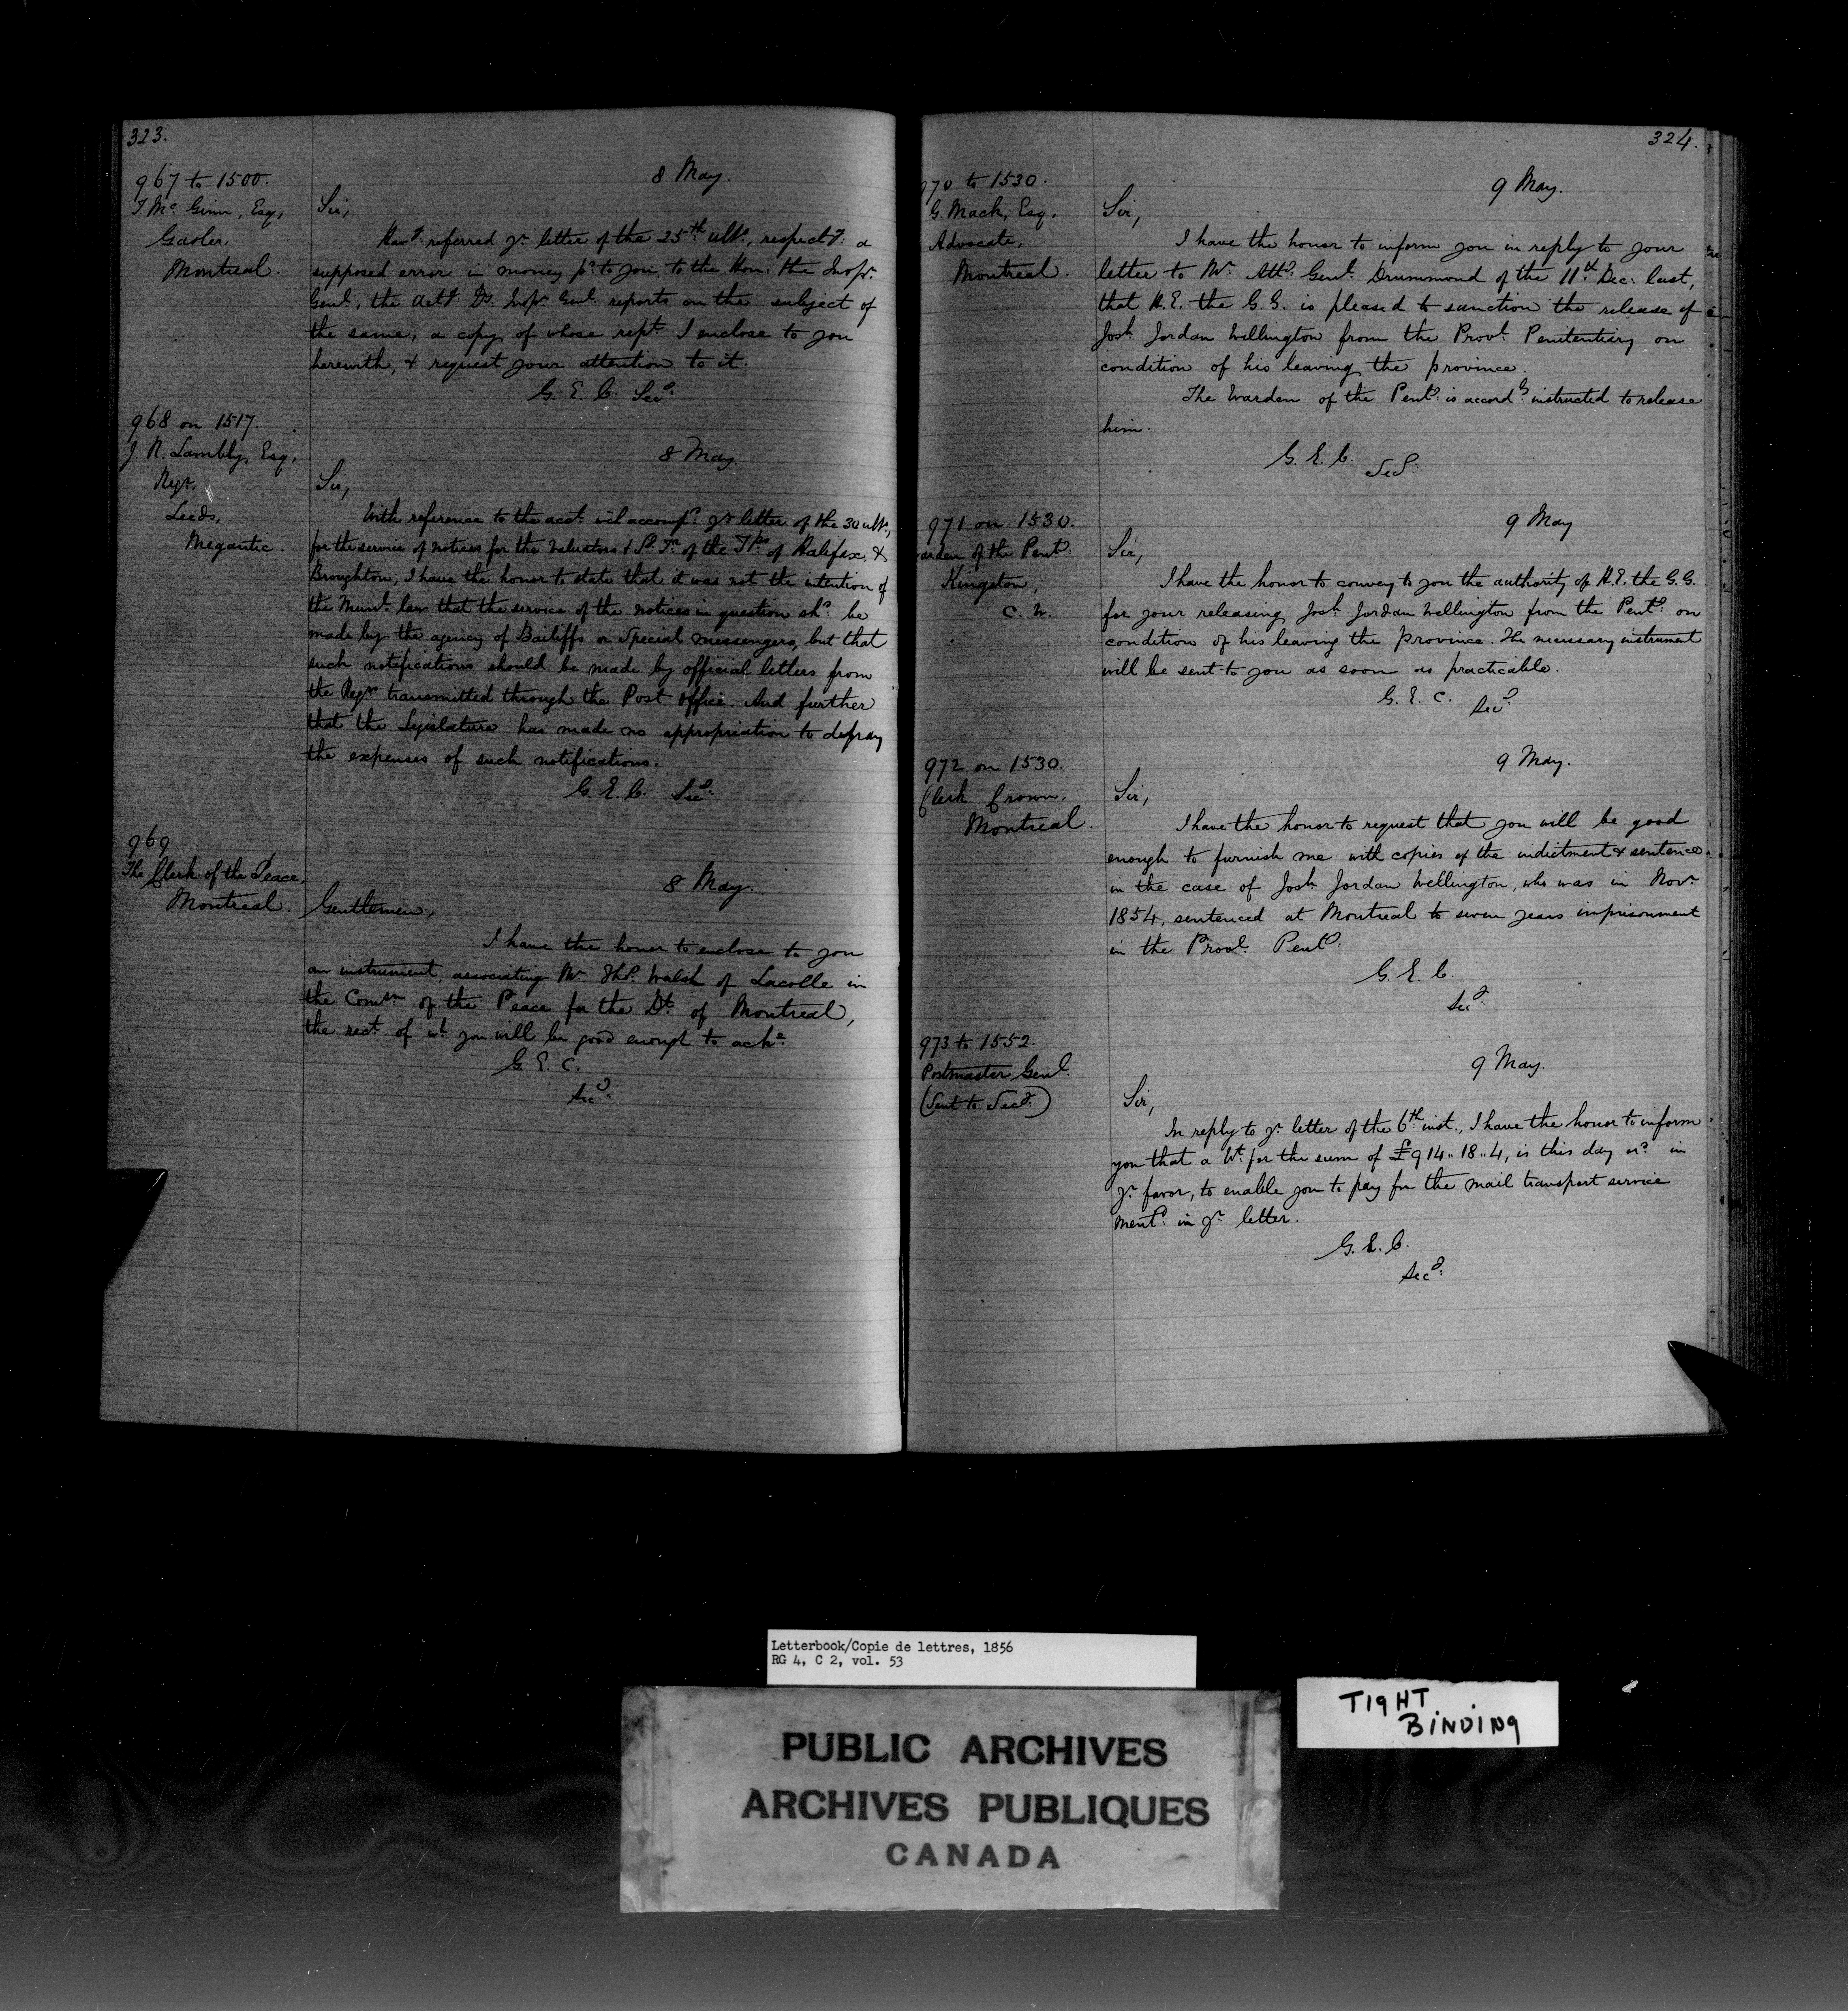 323.
967 to 1500.
T. Mc Ginn, Esq,
Gaoler,
Montreal.
8 May.
Sir,
Havg. referred yr letter of the 25th ulto, respectg: a
supposed error in money pd. to you, to the Hon: the Inspr.
Genl., the actg. Dy. Inspr. Genl. reports on the subject of
the same, a copy of whose rept. I enclose to you
herewith, & request your attention to it.
G. E. C. Secy:
968 on 1517.
J. R. Lambly, Esq,
Regr.
Leeds,
Megantic.
8 May.
Sir,
With reference to the acct. wh accompd. yr letter of the 30 ulto,
for the service of notices for the Valuators & of the Tps. of Halifax &
Broughton, I have the honor to state that it was not the intention of
the Munl. law that the service of the notices in question shd. be
made by the agency of Bailiffs or Special messengers, but that
such notifications should be made by official letters from
the Regr. transmitted through the Post Office. And further
that the Legislature has made no appropriation to defray
the expenses of such notifications.
G. E. C. Secy:
969
The Clerk of the Peace,
Montreal.
8 May.
Gentlemen,
I have the honor to enclose to you
an instrument, associating Mr. Thos. Walsh of Lacolle in
the Comsn of the Peace for the Dt. of Montreal,
the rect. of wh. you will be good enough to acke.
G. E. C.
Secy:
324.
970 to 1530.
G. Mack, Esq,
Advocate,
Montreal.
9 May.
Sir,
I have the honor to inform you in reply to your
letter to Mr. Atty. Genl. Drummond of the 11th. Dec: last,
that H. E. the G. G. is pleased to sanction the release of
Josh. Jordan Wellington from the Provl. Penitentiary on
condition of his leaving the province.
The Warden of the Penty: is accordy. instructed to release
him.
G. E. C.
Secy:
971 on 1530.
arden of the Penty:
Kingston,
C. W.
9 May
Sir,
I have the honor to convey to you the authority of H. E. the G. G.
for your releasing Josh. Jordan Wellington from the Penty: on
condition of his leaving the province. The necessary instrument
will be sent to you as soon as practicable.
G. E. C.
Secy
972 on 1530.
Clerk Crown.
Montreal.
9 May.
Sir,
I have the honor to request that you will be good
enough to furnish me with copies of the indictment & sentence
in the case of Josh. Jordan Wellington, who was in Novr.
1854, sentenced at Montreal to seven years imprisonment
in the Provl. Penty.
G. E. C.
Secy:
973 to 1552.
Postmaster Genl.
(Sent to Secy.)
9 May.
Sir,
In reply to yr letter of the 6th. inst., I have the honor to inform
you that a Wt. for the sum of £914..18..4, is this day isd. in
yr. favor, to enable you to pay for the mail transport service
mentd. in yr. letter.
G. E. C.
Secy:
Letterbook/Copie de lettres, 1856
RG 4, C 2, vol. 53
TIGHT
BINDING
PUBLIC ARCHIVES
ARCHIVES PUBLIQUES
CANADA